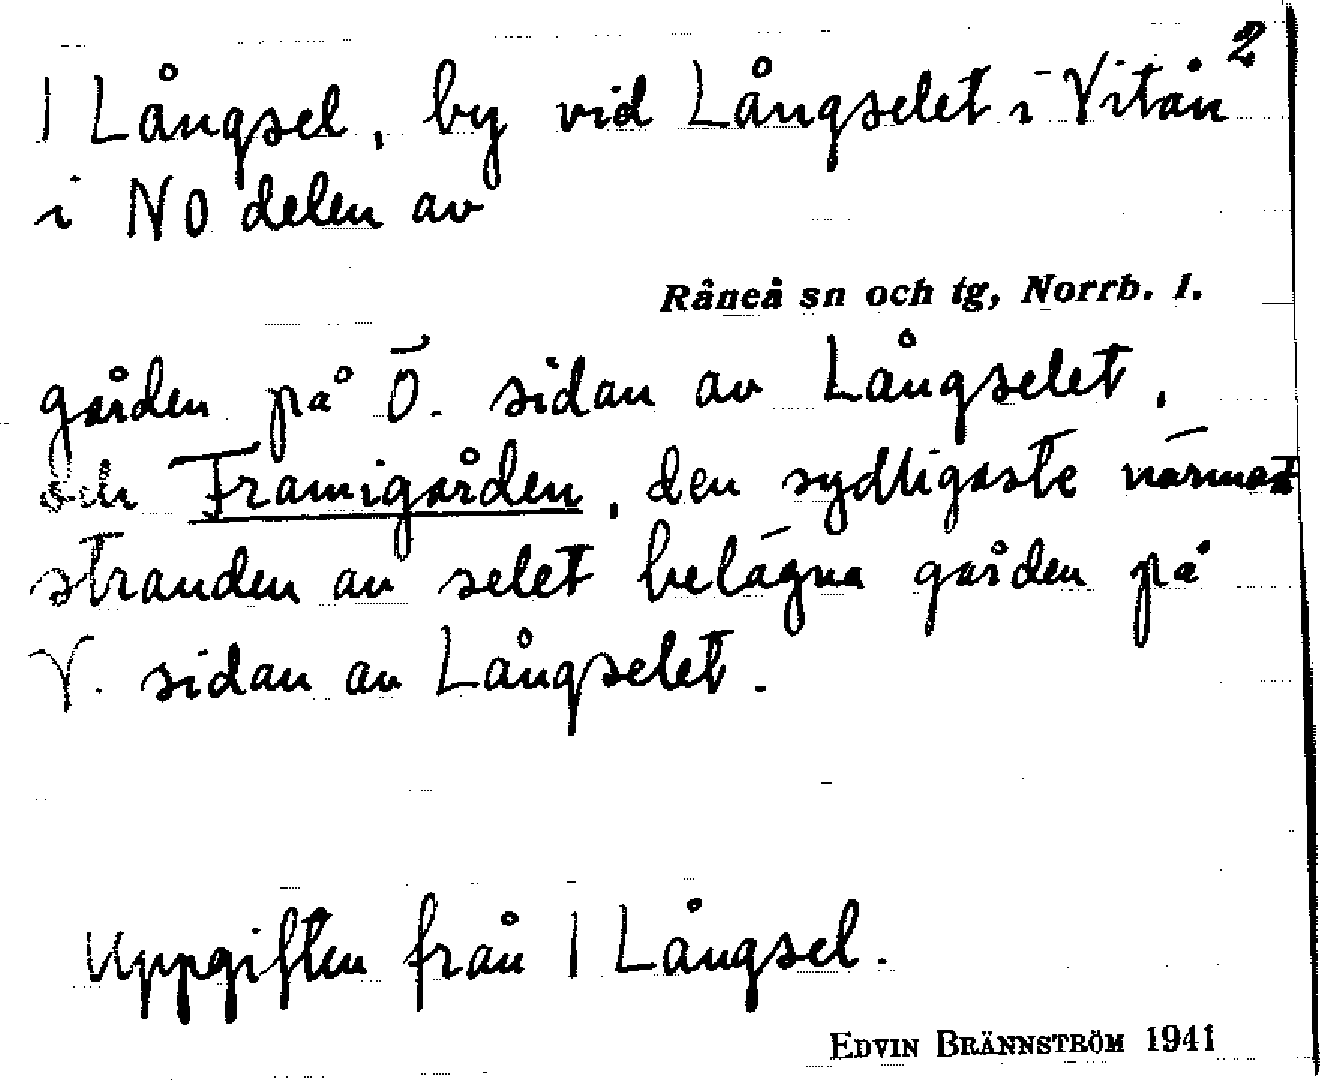 2
1 Långsel, by vid Långselet i Vitån
i NO delen av
Råneå sn och tg, Norrb. l.
gården på Ö. sidan av Långselet,
och Framigården, den sydligaste närmast
stranden av selet belägna gården på
V. sidan av Långselet.
Uppgiften från 1 Långsel.
EDVIN BRÄNNSTRÖM 1941